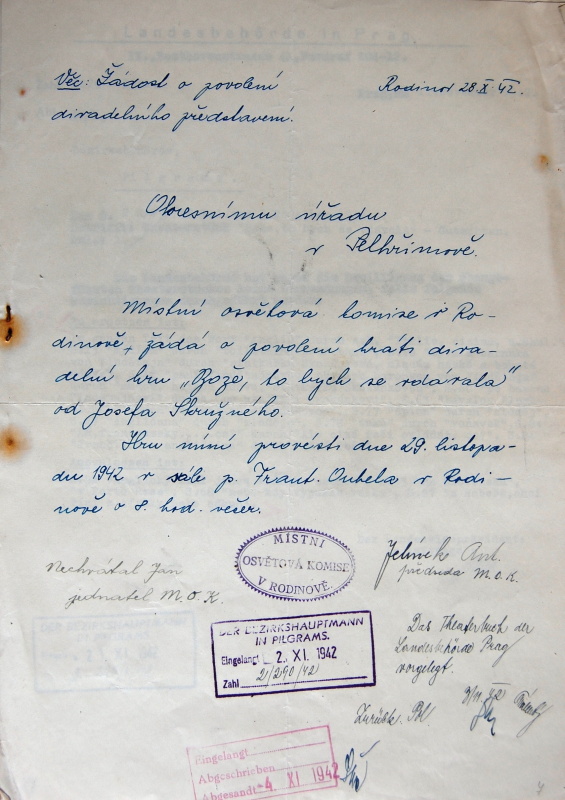 Věc: Žádost o povolení
divadelního představení.
Rodinov 28.X.42.
Okresnímu úřadu
v Pelhřimově.
Místní osvětová komise v Ro-
dinově, žádá o povolení hráti diva-
delní hru „Bože, to bych se vdávala"
od Josefa Skružného.
Hru míní provésti dne 29. listopa-
du 1942 v sále p. Frant. Oubela v Rodi-
nově o 8. hod. večer.
MÍSTNÍ
OSVĚTOVÁ KOMISE
V RODINOVĚ.
Nechvátal Jan
jednatel M.O.K.
Jelínek Ant.
předseda M.O.K.
DER BEZIRKSHAUPTMANN
IN PILGRAMS.
Eingelangt 2. XI. 1942
Zahl 2/290/42
Das Theaterbuch der
Landesbehörde Prag
vorgelegt.
Zurück
Eingelangt
Abgeschrieben
Abgesandt -4. XI 1942